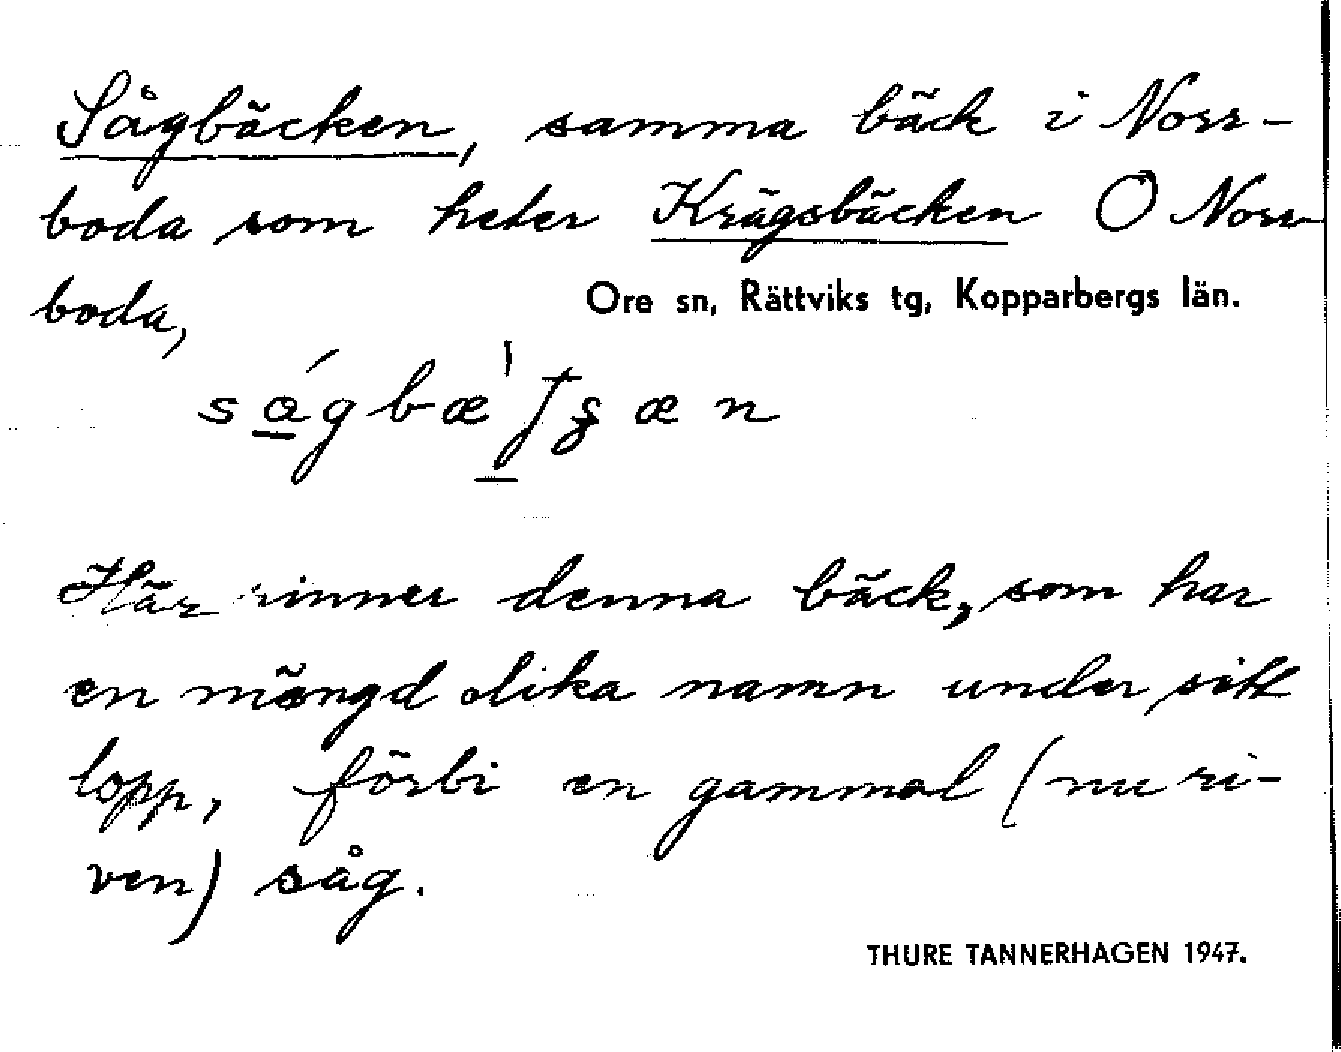 Sågbäcken, samma bäck i Norr-
boda som heter Krägsbäcken O Norr
boda,
Ore sn, Rättviks tg, Kopparbergs län.
Här rinner denna bäck, som har
en mängd olika namn under sitt
lopp, förbi en gammal (nu ri-
ven) såg.
THURE TANNERHAGEN 1947.